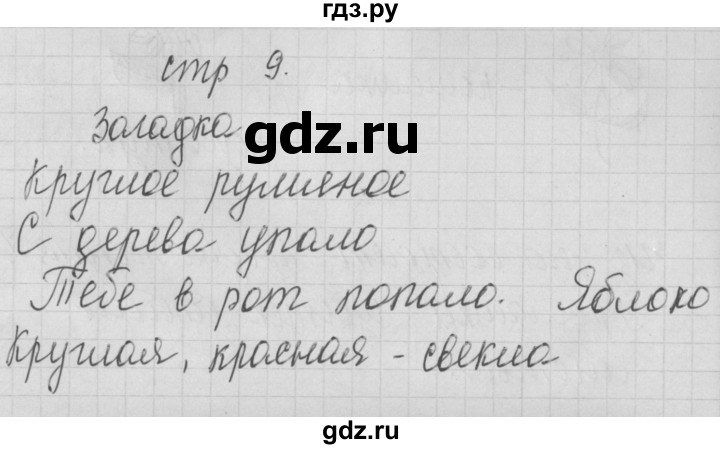 гдз.ру
стр 9.
Загадка
gdz.ru
Круглое румяное
С дерева упало
Тебе в рот попало. Яблоко
Круглая, красная - свекла
gdz.ru